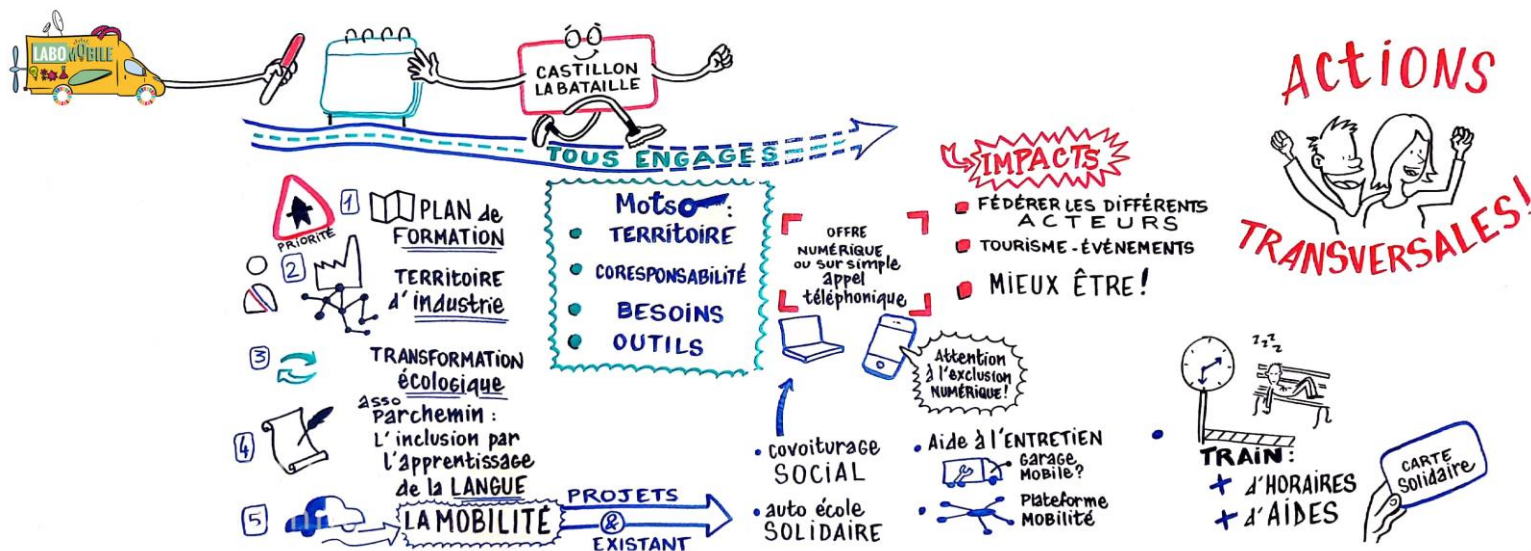 LABO MOBILE
CASTILLON
LABATAILLE
TOUS ENGAGÉS
PRIORITÉ
1
PLAN de
FORMATION
2
TERRITOIRE
d'industrie
3
TRANSFORMATION
écologique
4
asso
Parchemin :
L'inclusion par
l'apprentissage
de la LANGUE
5
LA MOBILITÉ
PROJETS
&
EXISTANT
Mots :
TERRITOIRE
CORESPONSABILITÉ
BESOINS
OUTILS
OFFRE
NUMÉRIQUE
ou sur simple
appel
téléphonique
Attention
à l'exclusion
NUMÉRIQUE!
covoiturage
SOCIAL
auto école
SOLIDAIRE
IMPACTS
FÉDÉRER LES DIFFÉRENTS
ACTEURS
TOURISME-ÉVÉNEMENTS
MIEUX ÊTRE!
Aide à l'ENTRETIEN
Garage
Mobile?
Plateforme
MOBILITÉ
ACTIONS
TRANSVERSALES!
zzzz
TRAIN:
+ d'HORAIRES
+ d'AIDES
CARTE
Solidaire